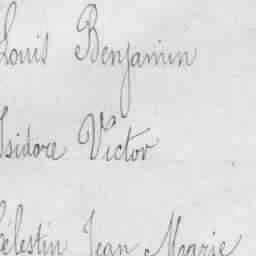 Louis Benjamin
Isidore Victor
Célestin Jean Marie